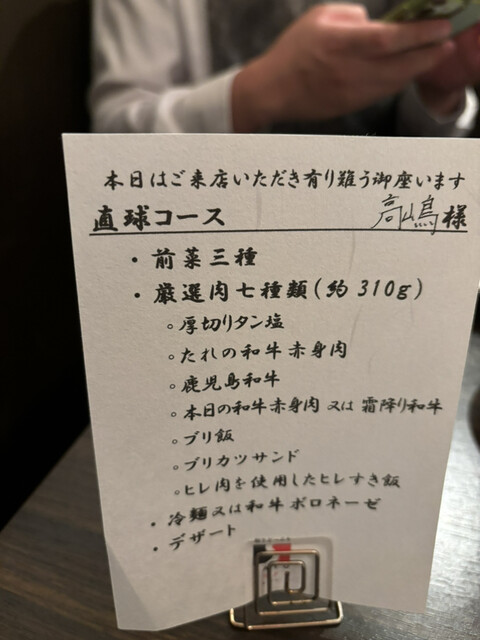 本日はご来店いただき有り難う御座います
直球コース 高嶋様
・前菜三種
・厳選肉七種類(約310g)
。厚切りタン塩
。たれの和牛赤身肉
。鹿児島和牛
。本日の和牛赤身肉 又は 霜降り和牛
。ブリ飯
。ブリカツサンド
。ヒレ肉を使用したヒレすき飯
・冷麺又は和牛ボロネーゼ
・デザート